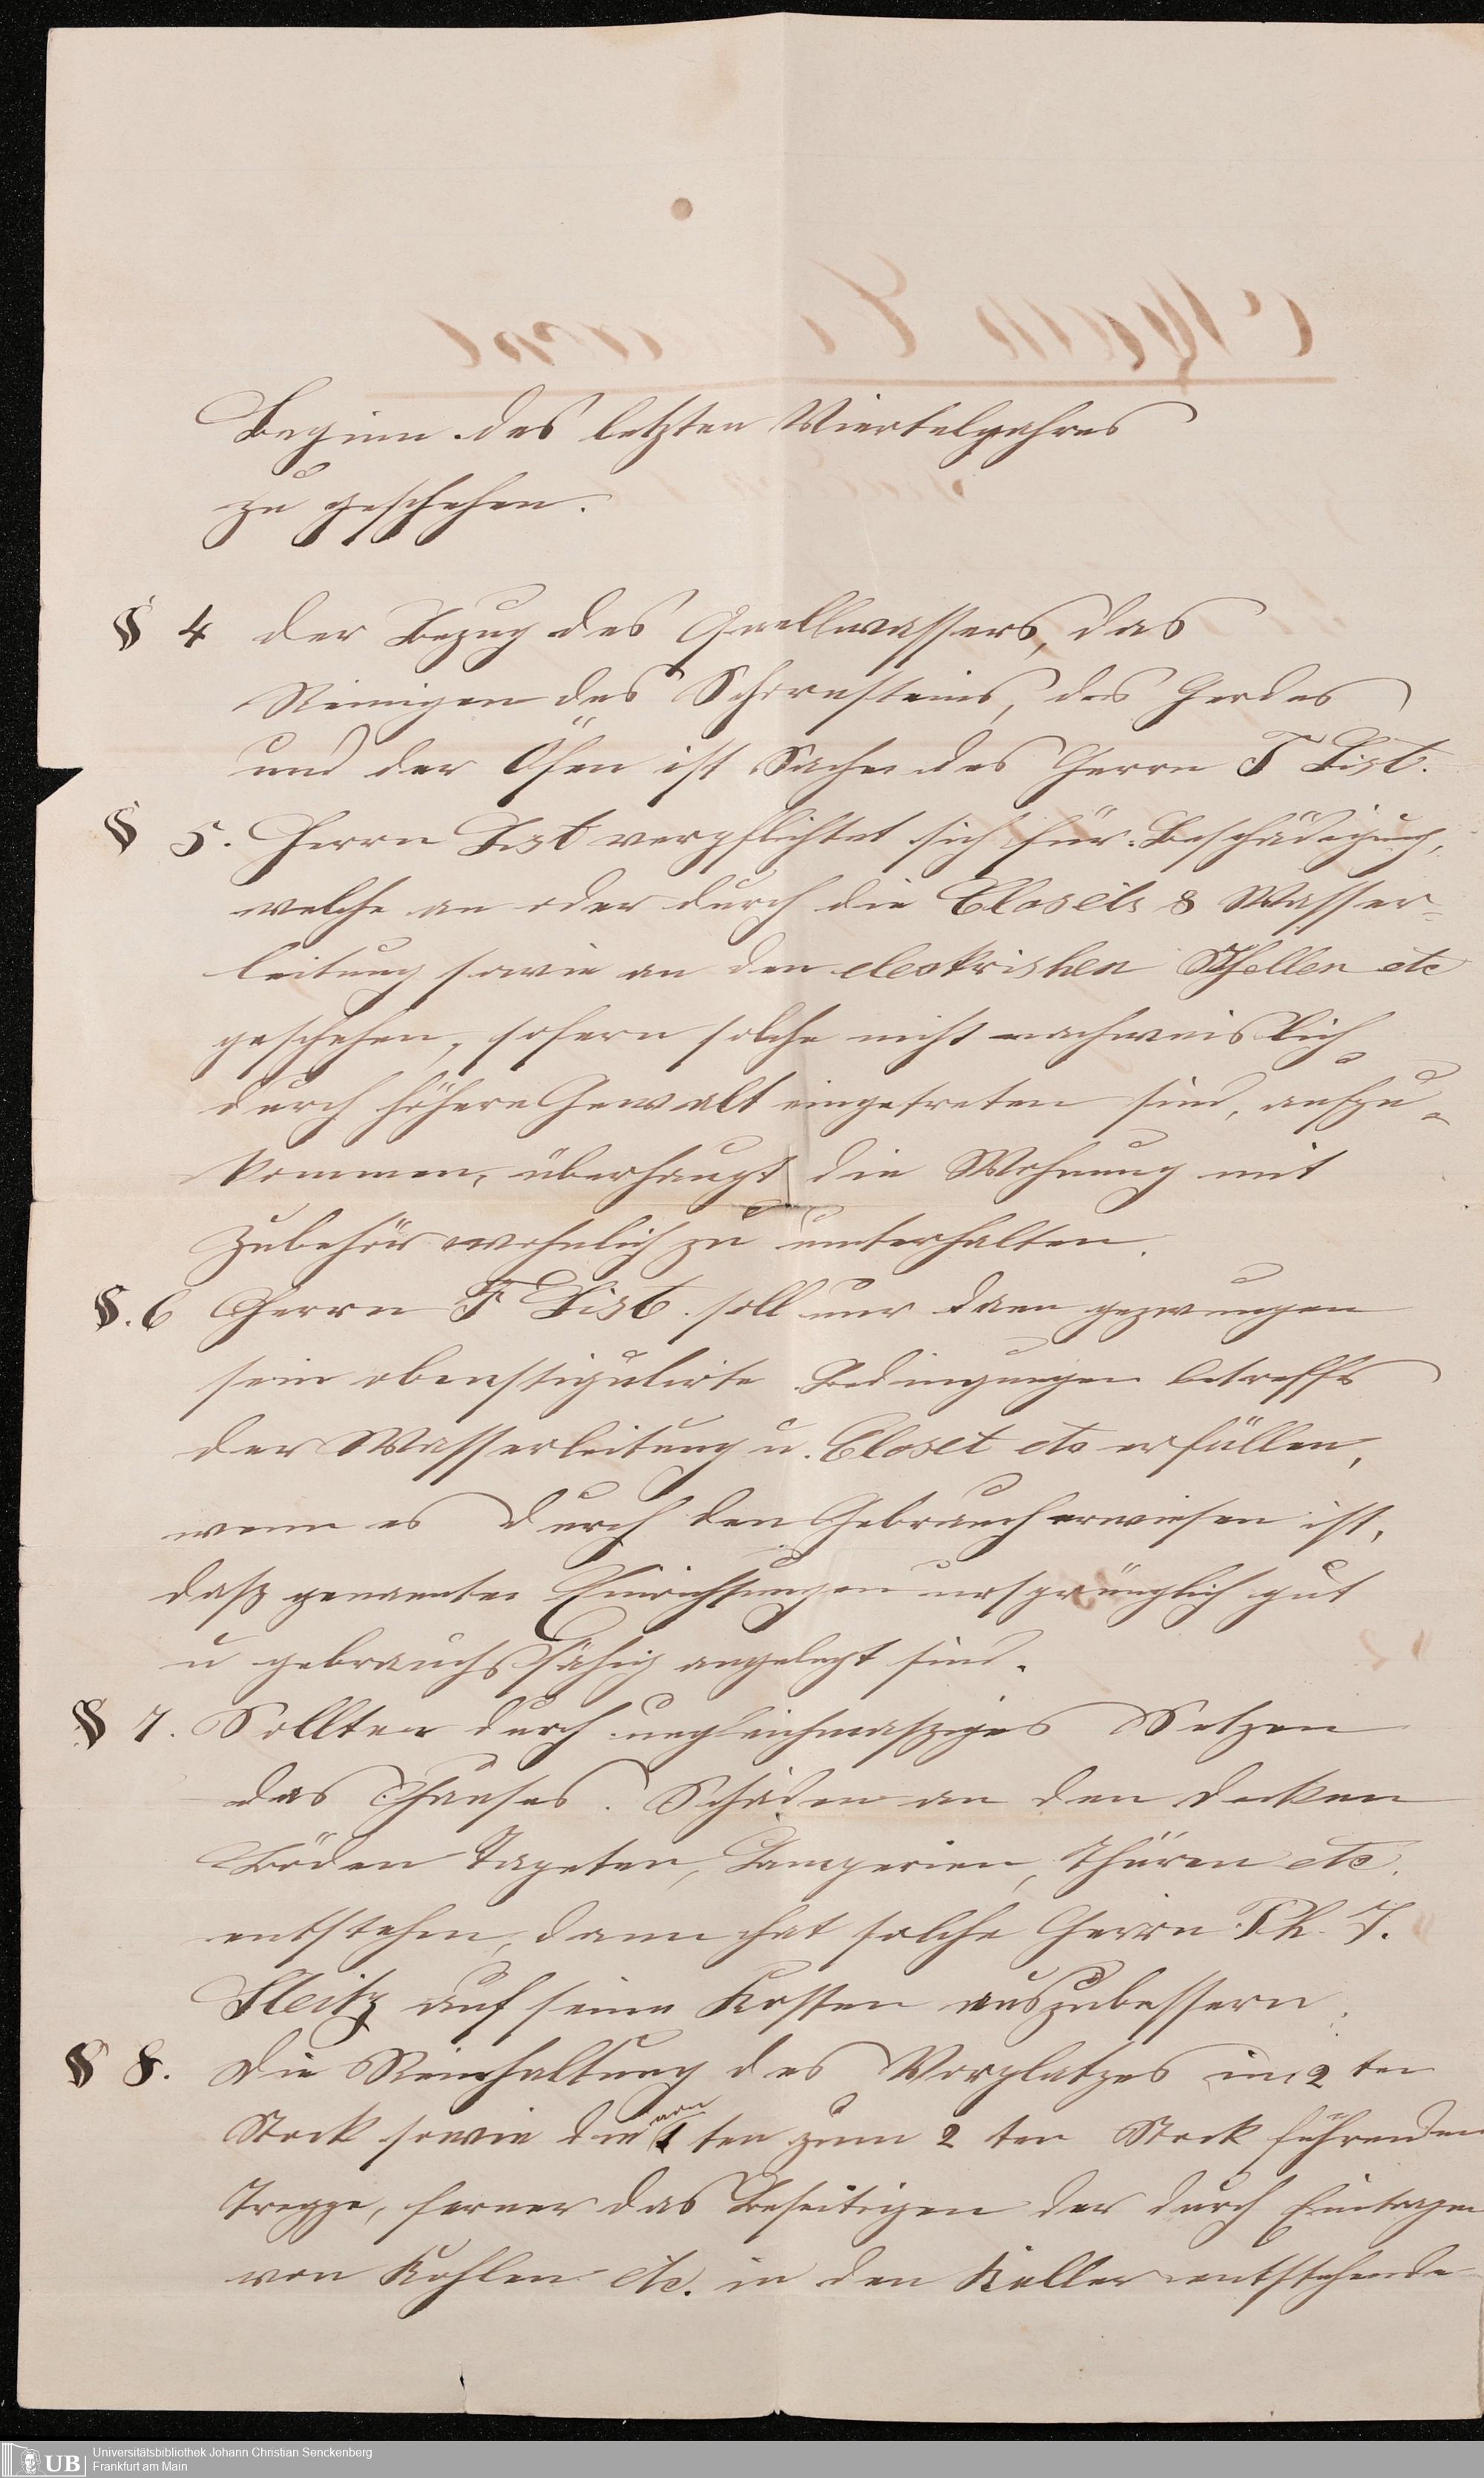 Beginn des letzten Vierteljahres
zu geschehen.
§ 4 der Bezug des Quellwassers, das
Reinigen des Schornsteins, des Herdes
und der Öfen ist Sache des Herrn F List.
§ 5. Herrn List verpflichtet sich für Beschädigung,
welche an oder durch die Closets & Wasser=
leitung sowie an den electrishen Schellen etc
geschehen, sofern solche nicht nachweislich
durch höhere Gewalt eingetreten sind, aufzu=
kommen, überhaupt die Wohnung mit
Zubehör wohnlich zu unterhalten.
§. 6 Herrn F List. soll nur dann gezwungen
sein obenstipulirte Bedingungen betreffs
der Wasserleitung u. Closet etc erfüllen,
wenn es durch den Gebrauch erwiesen ist,
dass genannte Einrichtungen ursprünglich gut
u gebrauchsfähig angelegt sind.
§ 7. Sollten durch ungleichmasziges Setzen
des Hauses. Schäden an den decken
Böden Tapeten, Lamperien, Thüren etc.
entstehen, dann hat solche Herrn Ph. J.
Fleitz auf seine Kosten auszubessern.
§ 8. Die Reinhaltung des Vorplatzes im 2 ten
Stock sowie die vom 1 ten zum 2 ten Stock führenden
Treppe, ferner das Beseitigen der durch Eintragen
von Kohlen etc. in den Keller entstehende
Universitätsbibliothek Johann Christian Senckenberg
Frankfurt am Main
UB